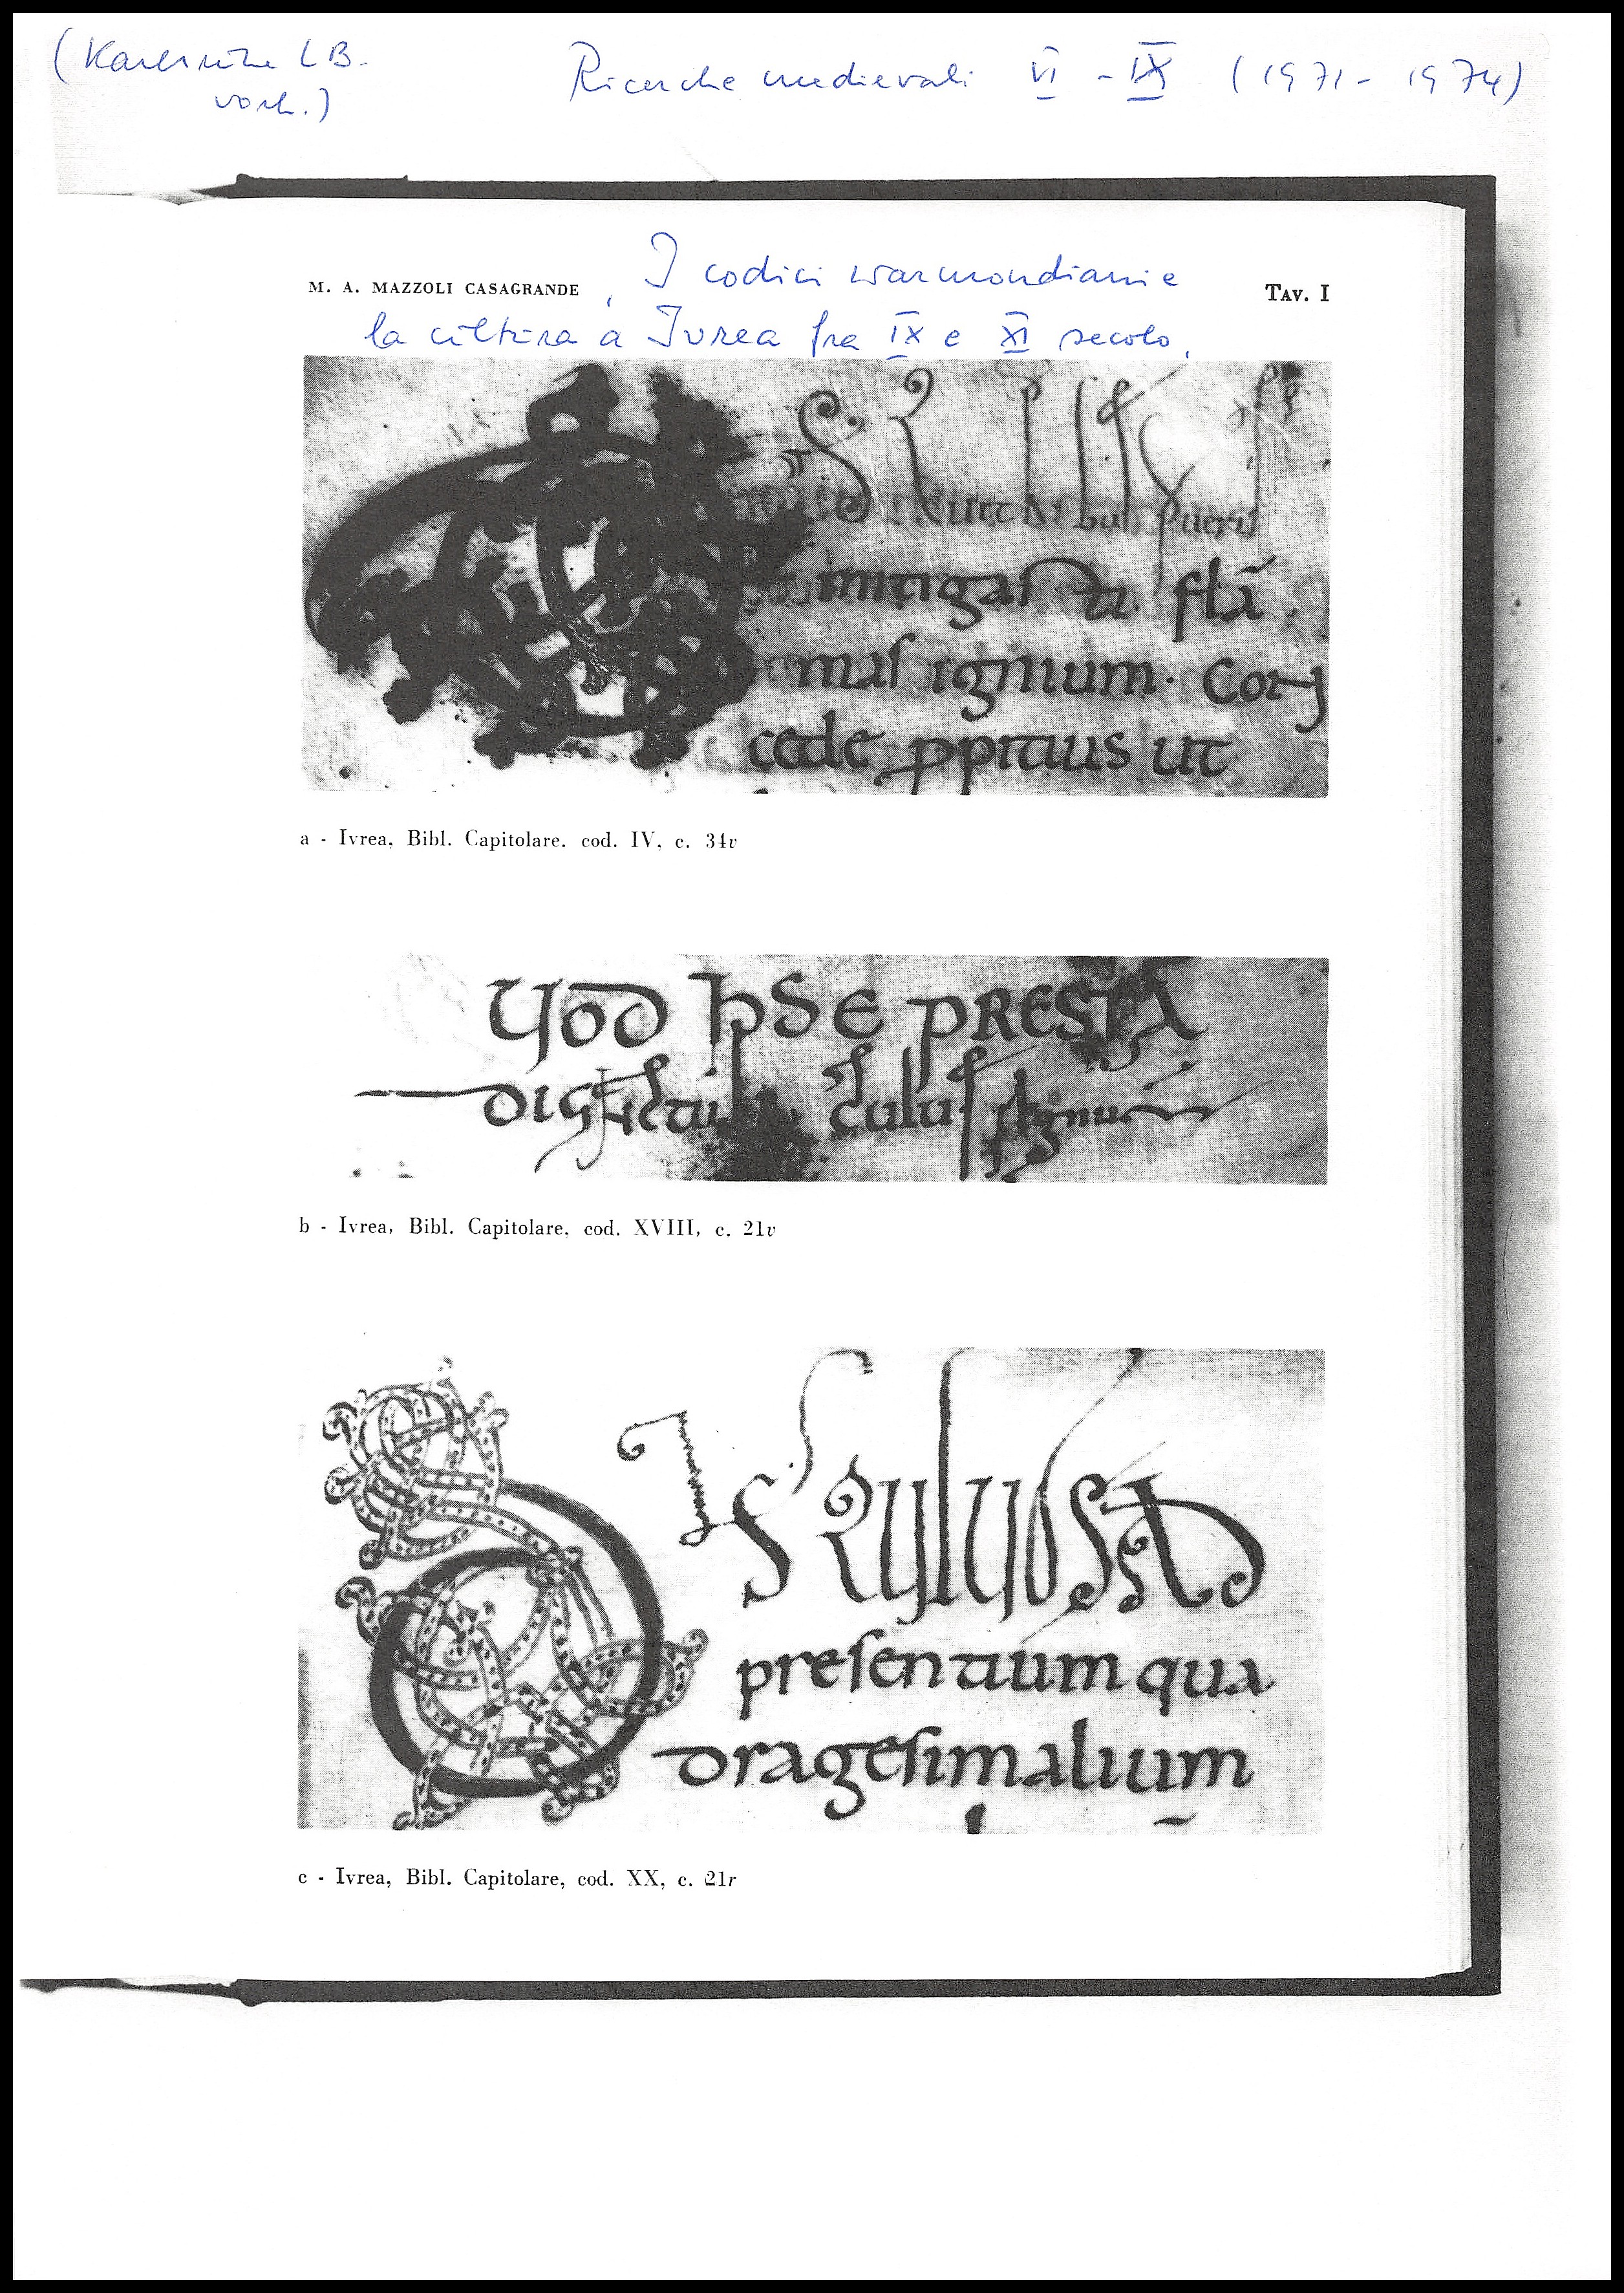 (Karlsruhe LB.
vorh.)
Ricerche medievali VI - IX (1971 - 1974)
M. A. MAZZOLI CASAGRANDE , I codici warmondiani e
TAV. I
la cultura a Ivrea fra IX e XI secolo,
mitigasti flā
mas ignium. Con
cede ꝓpitius ut
a - Ivrea, Bibl. Capitolare. cod. IV, c. 34v
PRESTA
b - Ivrea, Bibl. Capitolare, cod. XVIII, c. 21v
presentium qua
dragesimalium
c - Ivrea, Bibl. Capitolare, cod. XX, c. 21r